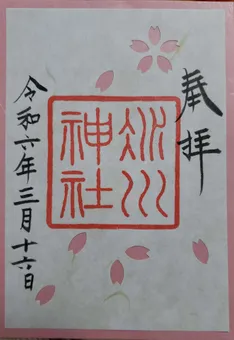 奉拝
冰川
神社
令和六年三月十六日